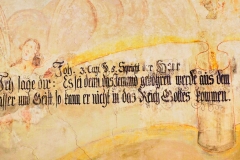 Joh. 3. Cap. V. 5. Spricht der Herr
Ich sage dir: Es sei denn das jemand gebohren werde aus dem
Wasser und Geist, so kann er nicht in das Reich Gottes kommen.